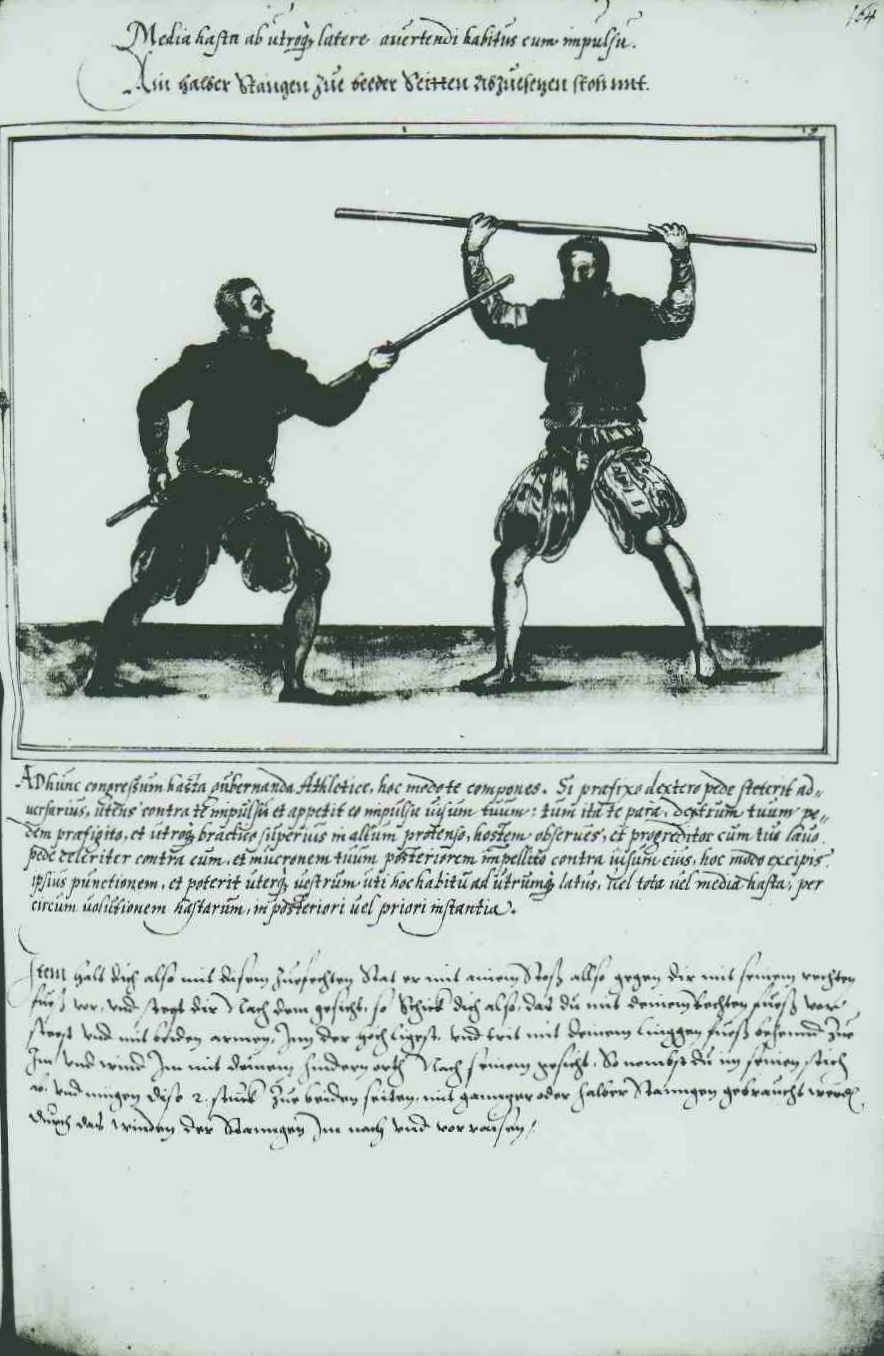 164
Media hasta ab utroq; latere avertendi habitus cum impulsu.
Ain halber Stangen zue beeder Seitten Abzuesetzen stoss mit.
ADhunc congressum hasta gubernanda Athletice, hoc modo te compones. Si praefixo dextero pede steterit ad„
versarius, utens contra te impulsu et appetit eo impulsu visum tuum: tum ita te para, dextrum tuum pe„
dem praefigito, et utroq; brachio superius in altum protenso, hostem observes, et progreditor cum tuo laevo
pede celeriter contra eum, et mucronem tuum posteriorem impellito contra visum eius, hoc modo excipis
ipsius punctionem, et poterit uterq; vestrum uti hoc habitu ad utrumq; latus, vel tota vel media hasta, per
circum volutionem hastarum, in posteriori vel priori instantia.
Item halt dich also mit disem zuefechten Stat er mit ainem Stoß allso gegen dir mit seinem rechten
fueß vor, vnd stegt dir Nach dem gesicht, so Schick dich also, das du mit deinem Rechten fueß vor
steest vnd mit beiden armen, Inn der hoch ligest, vnd trit mit deinem linggen fueß behennd Zue
Im vnd wind Im mit deinem hindern orth Nach seinem gesicht, So nembst du im seinen stich
vnd mügen dise 2. stuck Zue beiden seiten, mit gannger oder halber Stanngen gebraucht werd,
durch das winden der Stanngen Im nach vnd vor